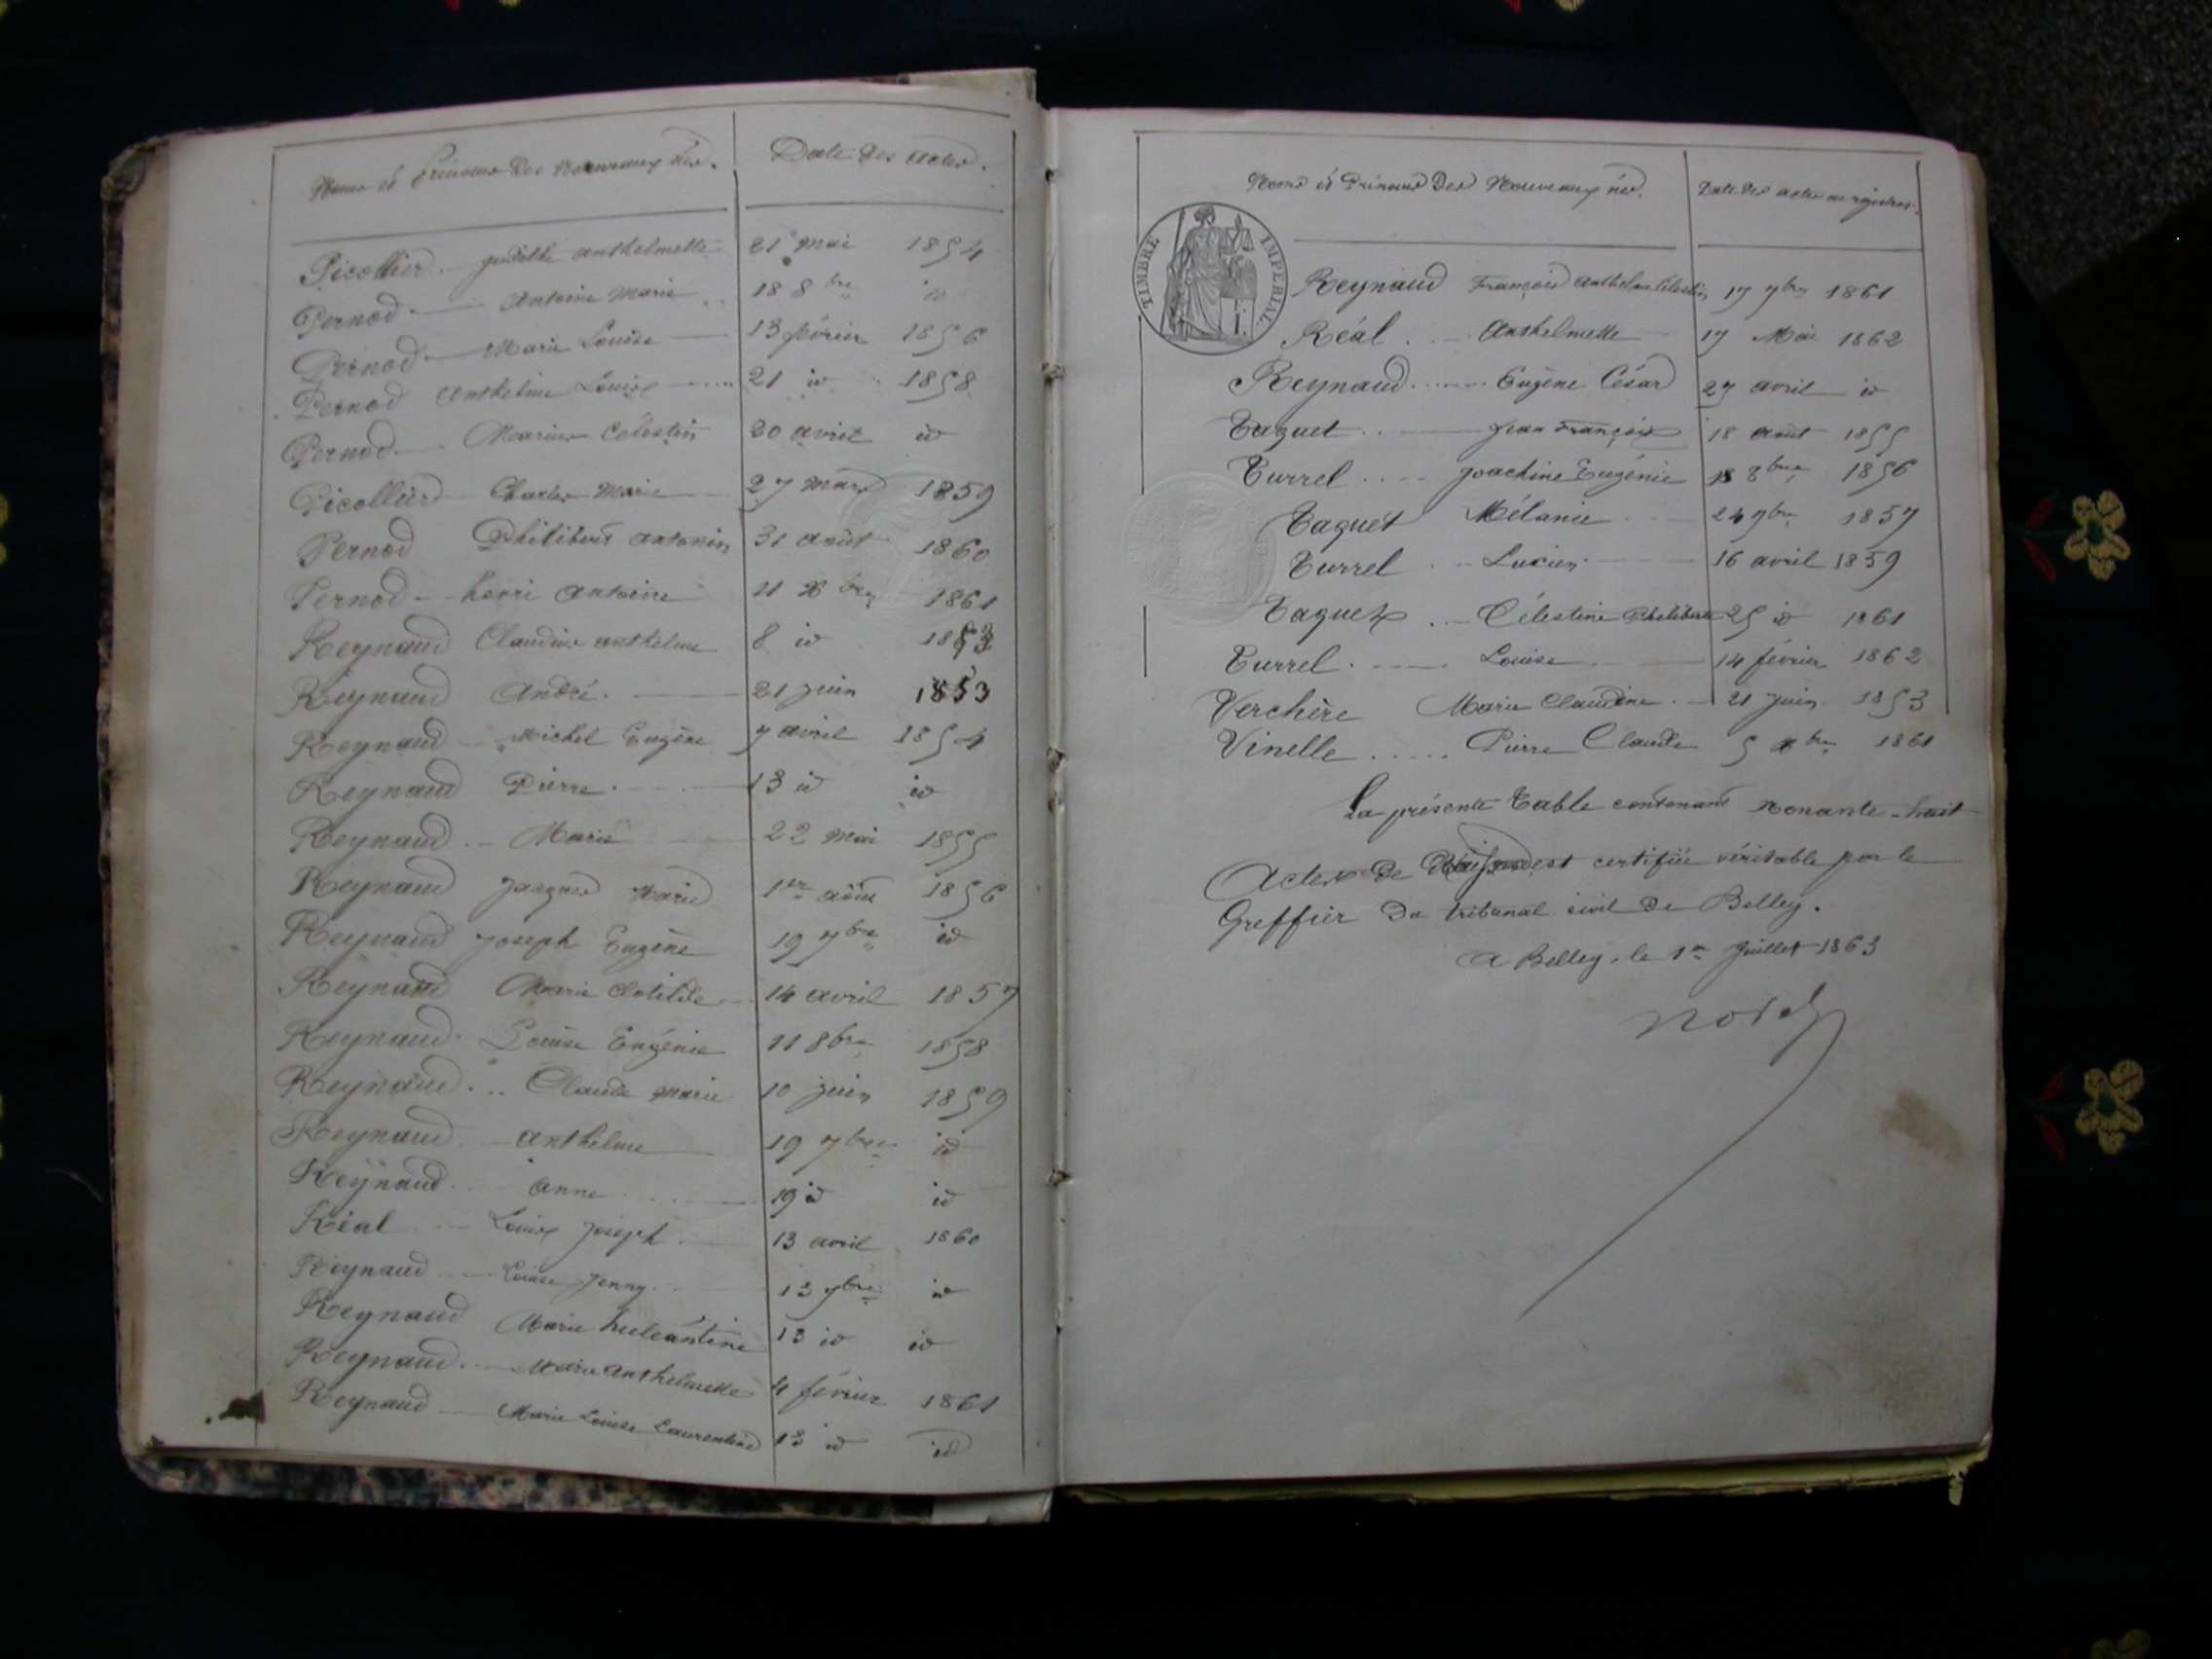 Noms et Prénoms Des Nouveaux nés. Date des actes.
Picollier - judithe anthelmette 21 Mai 1854
Pernod - Antoine Marie 18 8bre id
Pernod - Marie Louise 13 février 1856
Pernod Anthelme Louis 21 id 1858
Pernod - Marius Célestin 20 avril id
Picollier - Charles Marie 27 mars 1859
Pernod Philibert antonin 31 août 1860
Pernod - henri antoine 11 Xbre 1861
Reynaud Claudine anthelme 8 id
Reynaud André 21 juin 1853
Reynaud Michel Eugène 7 avril 1854
Reynaud Pierre 13 id id
Reynaud Marie 22 mai 1855
Reynaud Jacques Marie 1er août 1856
Reynaud Joseph Eugène 19 7bre id
Reynaud Marie Clotilde 14 avril 1857
Reynaud Louise Eugénie 11 8bre 1858
Reynaud Claude Marie 10 juin 1859
Reynaud anthelme 19 7bre id
Reynaud anne 19 id id
Réal Louis Joseph 13 avril 1860
Reynaud Louise Jenny 13 7bre id
Reynaud Marie 13 id id
Reynaud Marie anthelmette 4 février 1861
Reynaud Marie Louise Laurentine 13 id id
Noms et Prénoms Des Nouveaux nés. Date des actes au registres.
TIMBRE IMPERIAL
Reynaud François Anthelme Célestin 17 7bre 1861
Réal Anthelmette 17 Mai 1862
Reynaud Eugène César 27 avril id
Taguet Jean François 18 août 1855
Turrel Joachine Eugénie 18 8bre 1856
Taguet Mélanie 24 7bre 1857
Turrel Lucien 16 avril 1859
Taguet Célestine Philiberte 25 id 1861
Turrel Louise 14 février 1862
Verchère Marie Claudine 21 Juin 1853
Vinelle Pierre Claude 5 Xbre 1861
La présente Table contenant nonante-huit
Actes de est certifiée véritable par le
Greffier du tribunal civil de Belley.
A Belley, le 1er Juillet 1863